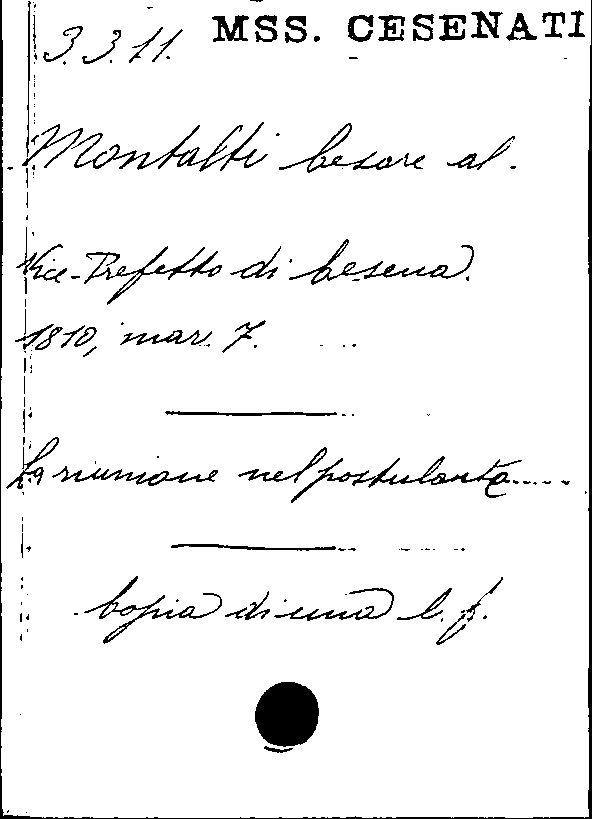 3.3.11. MSS. CESENATI
Montalti Cesare al
Vice-Prefetto di Cesena.
1810, mar. 7.
La riunione nel postulante.....
Copia di una l. f.